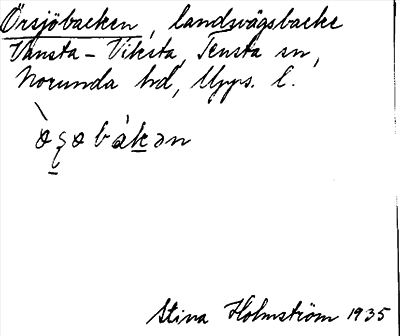 Örsjöbacken, landsvägsbacke
Vansta - Viksta, Tensta sn,
Norunda hd, Upps. l.
Stina Holmström 1935